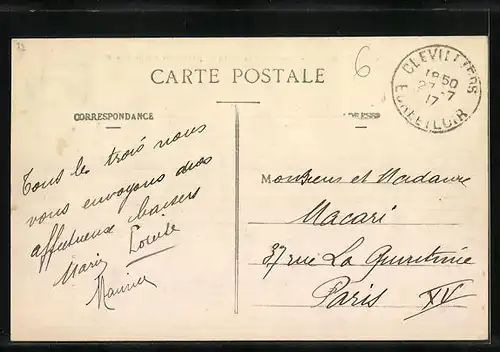 6
CLEVILLIERS
18 50
27 -7
17
EURE ET LOIR
CARTE POSTALE
CORRESPONDANCE
Tous les trois nous
vous envoyons nos
affectueux baisers
Marie Lucile
Maurice
Monsieur et Madame
Macari
37 rue La Quintinie
Paris XV